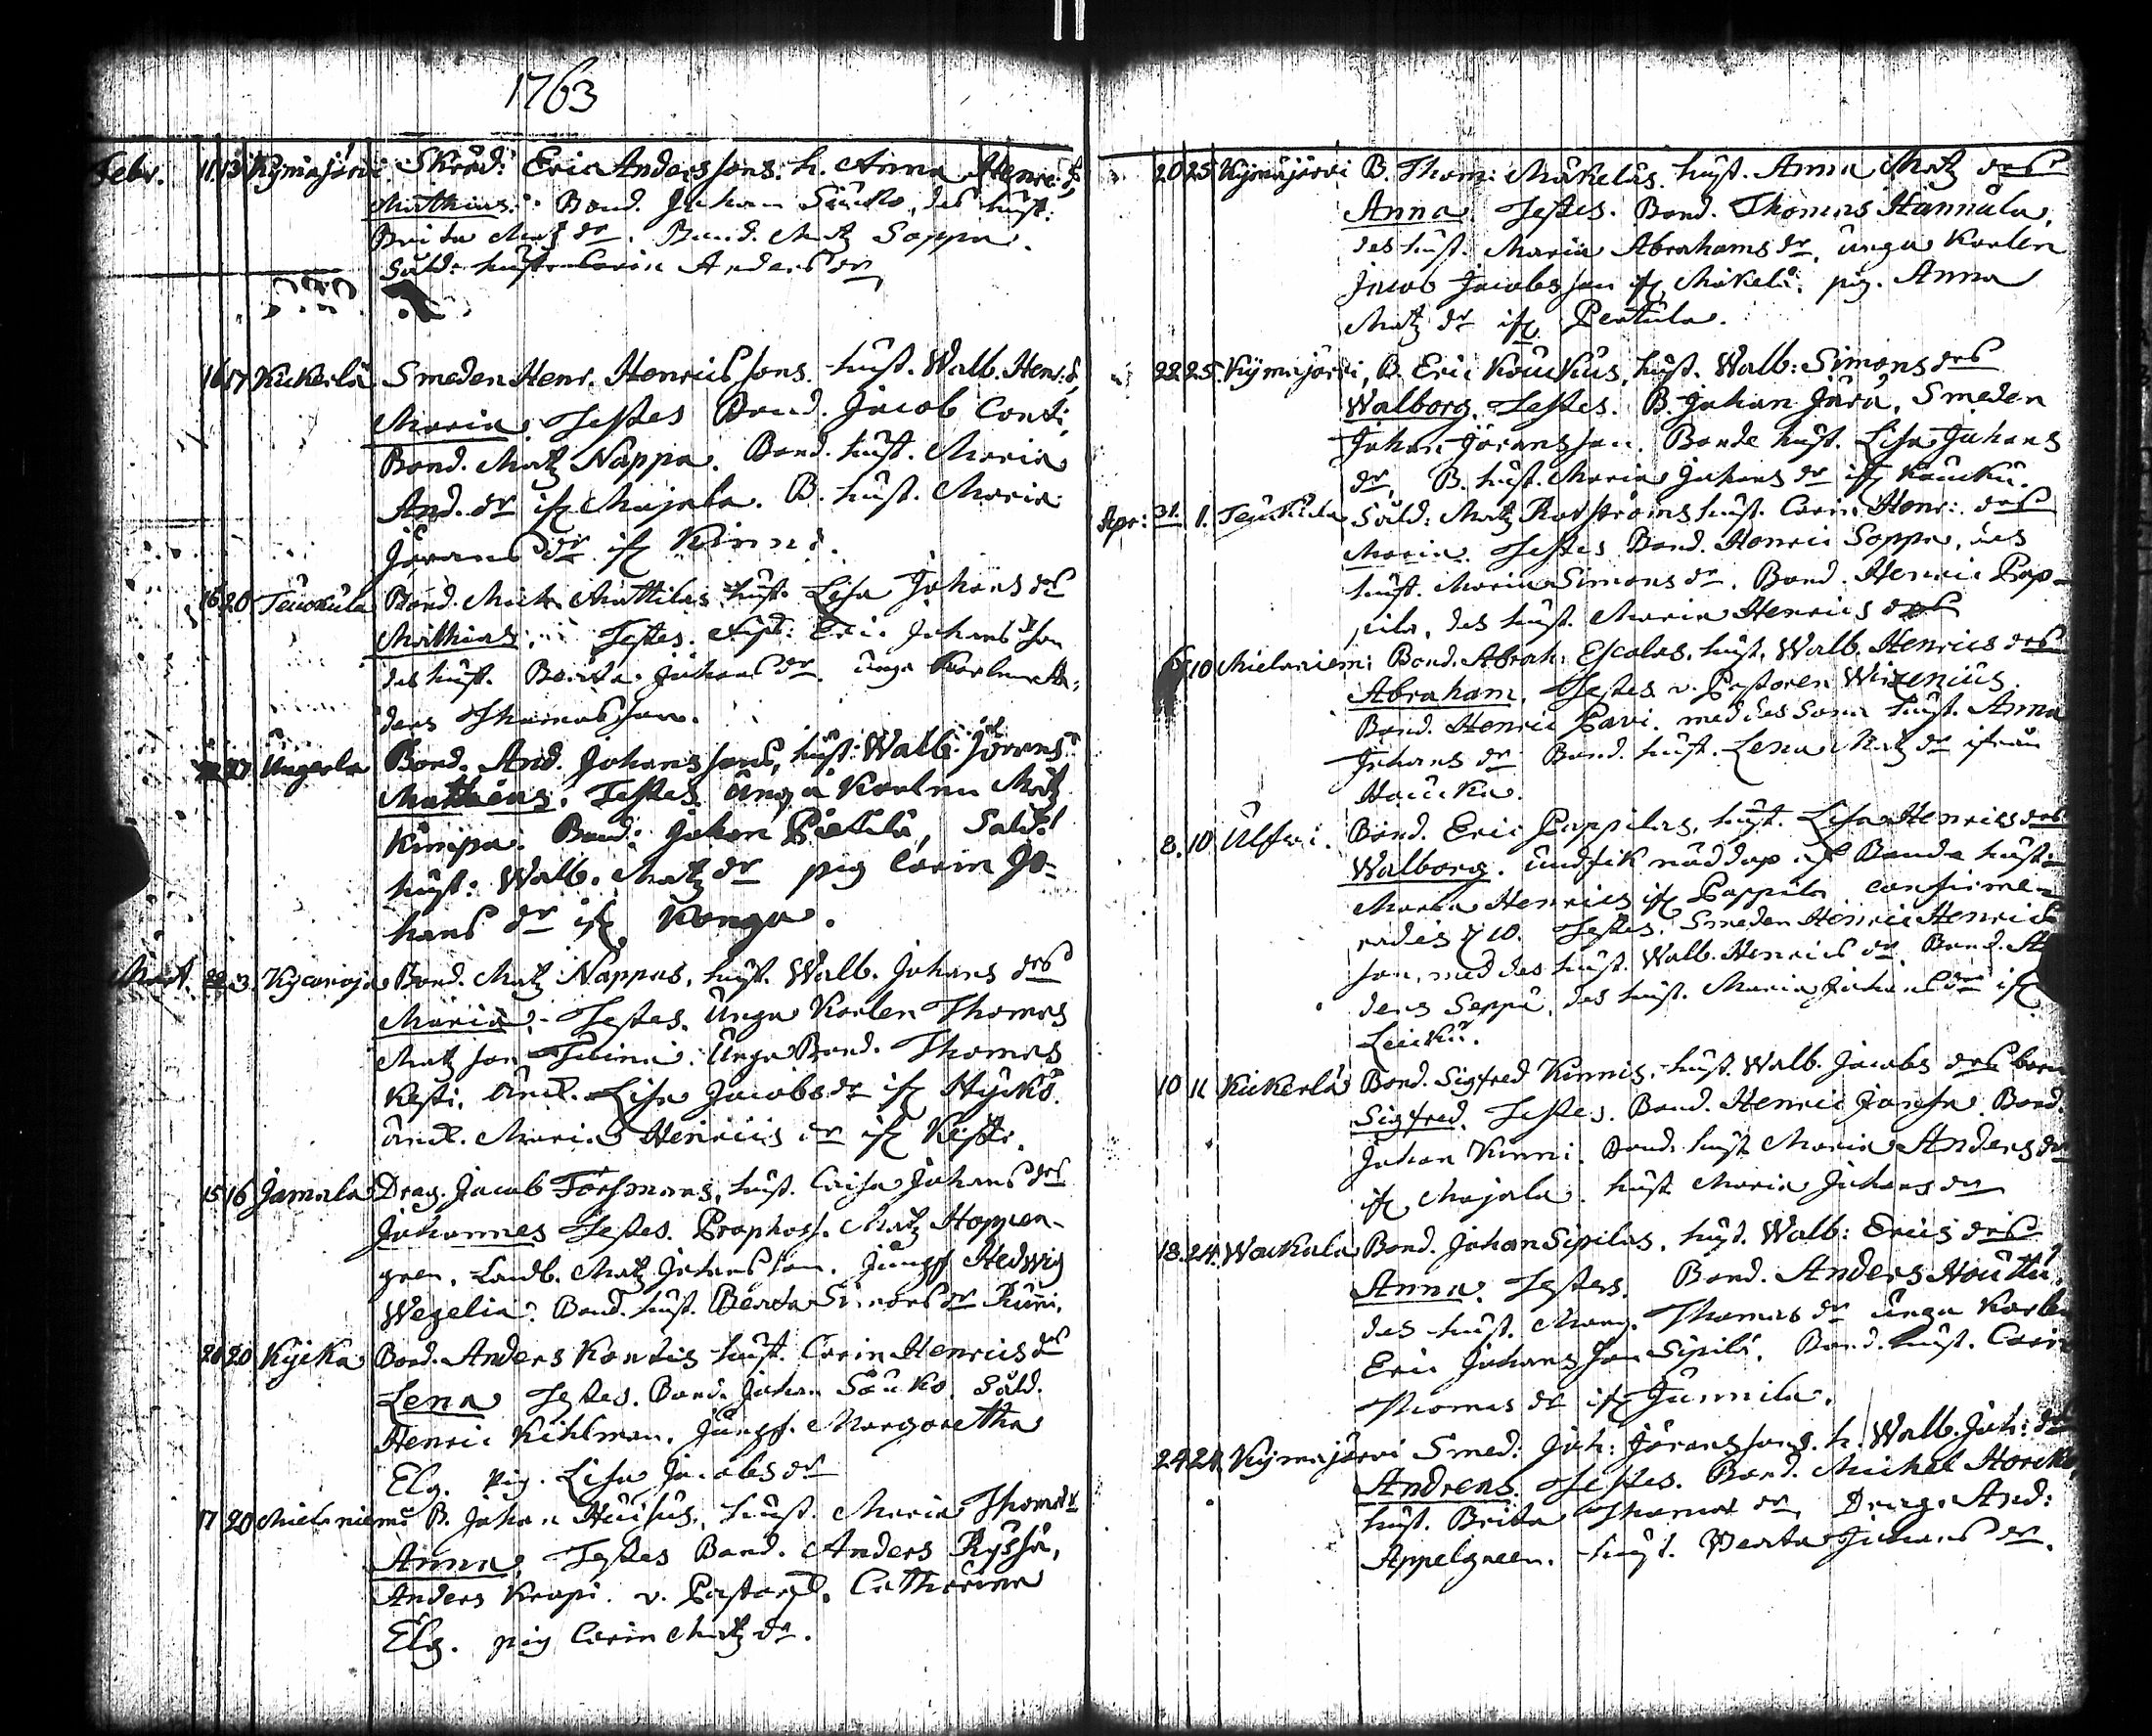 1763
Febr. 11. 13 Kymijärvi. Skräd: Eric Anderssons. h. Anna Henr: d
Mathias. Bond. Johan Säuko, des hust:
Brita Matz dr. Bond. Matz Soppa.
Sold: hustr Carin Anders dr
16 17 Kukerla Smeden Henr. Henrics sons. hust. Walb. Henr: d.
Maria. Testes Bond. Jacob Conti,
Bond. Matz Nappa. Bond. hust. Maria
And. dr if Majala. B. hust. Maria
Jörans dr if Kinni.
16 20 Bond. Mich Mattilas hust. Lisa Johans drs
Mathias. Testes. Eric Johans son
des hust. Beata Johans dr. unga Karlen An-
ders Thomas son.
27 Ungerla Bond. And. Johans sons, hust: Walb. Jörans
Mathias. Testes. Unga Karlen Matz
Kimpa. Bond: Johan Pietilä, Sold:
hust: Walb. Matz dr pig Carin Jo-
hans dr if Konga.
Mart. 3. Bond. Matz Nappas, hust. Walb. Johans drs
Maria. Testes. Unga Karlen Thomas
Matz son Unga Bond. Thomas
Kesti. änk. Lisa Jacobs dr if Hyckö.
änk. Maria Henrics dr if Kesti.
15 16 Jamala Drag. Jacob Forsmans, hust. Caisa Johans drs
Johannes Testes. Prophoss. Matz Hoppen-
gren. Landb. Matz Johans son. Jungf Hedwig
Wegelia. Bond. hust. Beata Simons dr
20 20 Kyika Bond. Anders Kontis hust. Carin Henrics drs
Lena Testes. Bond. Johan Säuko. Sold.
Henric Kihlman, Jungf. Margaretha
Elg. pig. Lisa Jacobs dr
17 20 Mielaniemi B. Johan Huisus, hust. Maria Thoms dr
Anna. Testes Bond. Anders Ryssä,
Anders Krapi. v. Pastorsk. Catharina
Elg. pig Carin Matz dr.
20 25 Kymijärvi B. Thom: Mäkeläs. hust. Anna Matz drs
Anna. Testes. Bond. Thomas Hannula,
des hust. Maria Abrahams dr, unga Karlen
Jacob Jacobs son if Mäkelä. pig. Anna
Matz dr if Pentula.
22. 25. Kymijärvi, B. Eric Koukus, hust. Walb: Simons drs
Walborg. Testes. B. Johan Jara, Smeden
Johan Jörans son. Bonde hust. Lisa Johans
dr, B. hust. Maria Johans dr if Koucku.
Apr: 31. 1. Sold: Matz hust. Carin Henr: drs
Maria. Testes Bond. Henric Soppa, des
hust. Maria Simons dr. Bond. Henric Pap-
pila, des hust. Maria Henrics drs
10 Mielaniem: Bond. Abrah: Escolas, hust. Walb. Henrics drs
Abraham, Testes v. Pastoren Wixenius.
Bond. Henric Pavi. med des Sons hust. Anna
Johans dr Bond. hust. Lena Matz dr ifrån
Haucka.
8. 10 Ulfwi. Bond. Eric Pappilas, hust. Lisa Henrics drs
Walborg. undfik nöddop af Bonde hust:
Maria Henrics if Pappila confirme-
rades d 10. Testes. Smeden Henric Henrics
son, med des hust. Walb. Henrics dr. Bond. An
ders Seppä, des hust. Maria Johans dr if
10 11 Kukerla Bond. Sigfred Kinnis, hust. Walb. Jacobs drs barn
Sigfred. Testes. Bond. Henric Jansa. Bond.
Johan Kinni. Bond. hust Maria Anders dr
if Majala. hust Maria Johans dr
18. 24. Bond. Johan Sipilas, hust. Walb: Erics drs
Anna. Testes. Bond. Anders
des hust. Marg. Thomas dr unga Karlen
Eric Johans son Sipilä, Bond. hust. Carin
Thomas dr if Junnila.
24 24. Kymijärvi Smed: Joh: Jöranssons. h. Walb. Joh: drs
Andreas. Testes. Bond. Michel
hust. Brita Thomas dr, Drag. And:
Appelgreen. hust. Beata Johans dr.